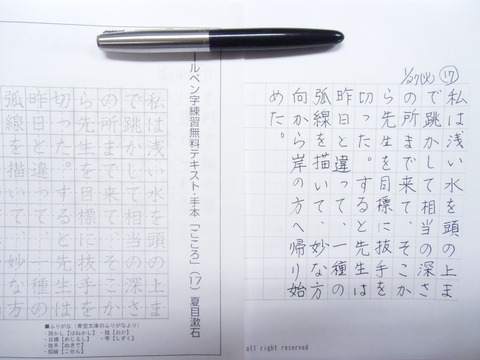 ⑰
1/27(火)
私は浅い水を頭の上ま
で跳かして相当の深さ
の所まで来て、そこか
ら先生を目標に抜手を
切った。すると先生は
昨日と違って、一種の
弧線を描いて、妙な方
向から岸の方へ帰り始
めた。
all right reserved
ールペン字練習無料テキスト・手本「こころ」(17) 夏目漱石
私は浅い水を頭の上ま
で跳かして相当の深さ
の所まで来て、そこか
ら先生を目標に抜手を
切った。すると先生は
昨日と違って、一種の
弧線を描いて、妙な方
■ふりがな（青空文庫のふりがなより）
・跳かし【はねかし】 ・陸【おか】
・目標【めじるし】 ・雫【しずく】
・抜手【ぬきで】
・弧線【こせん】